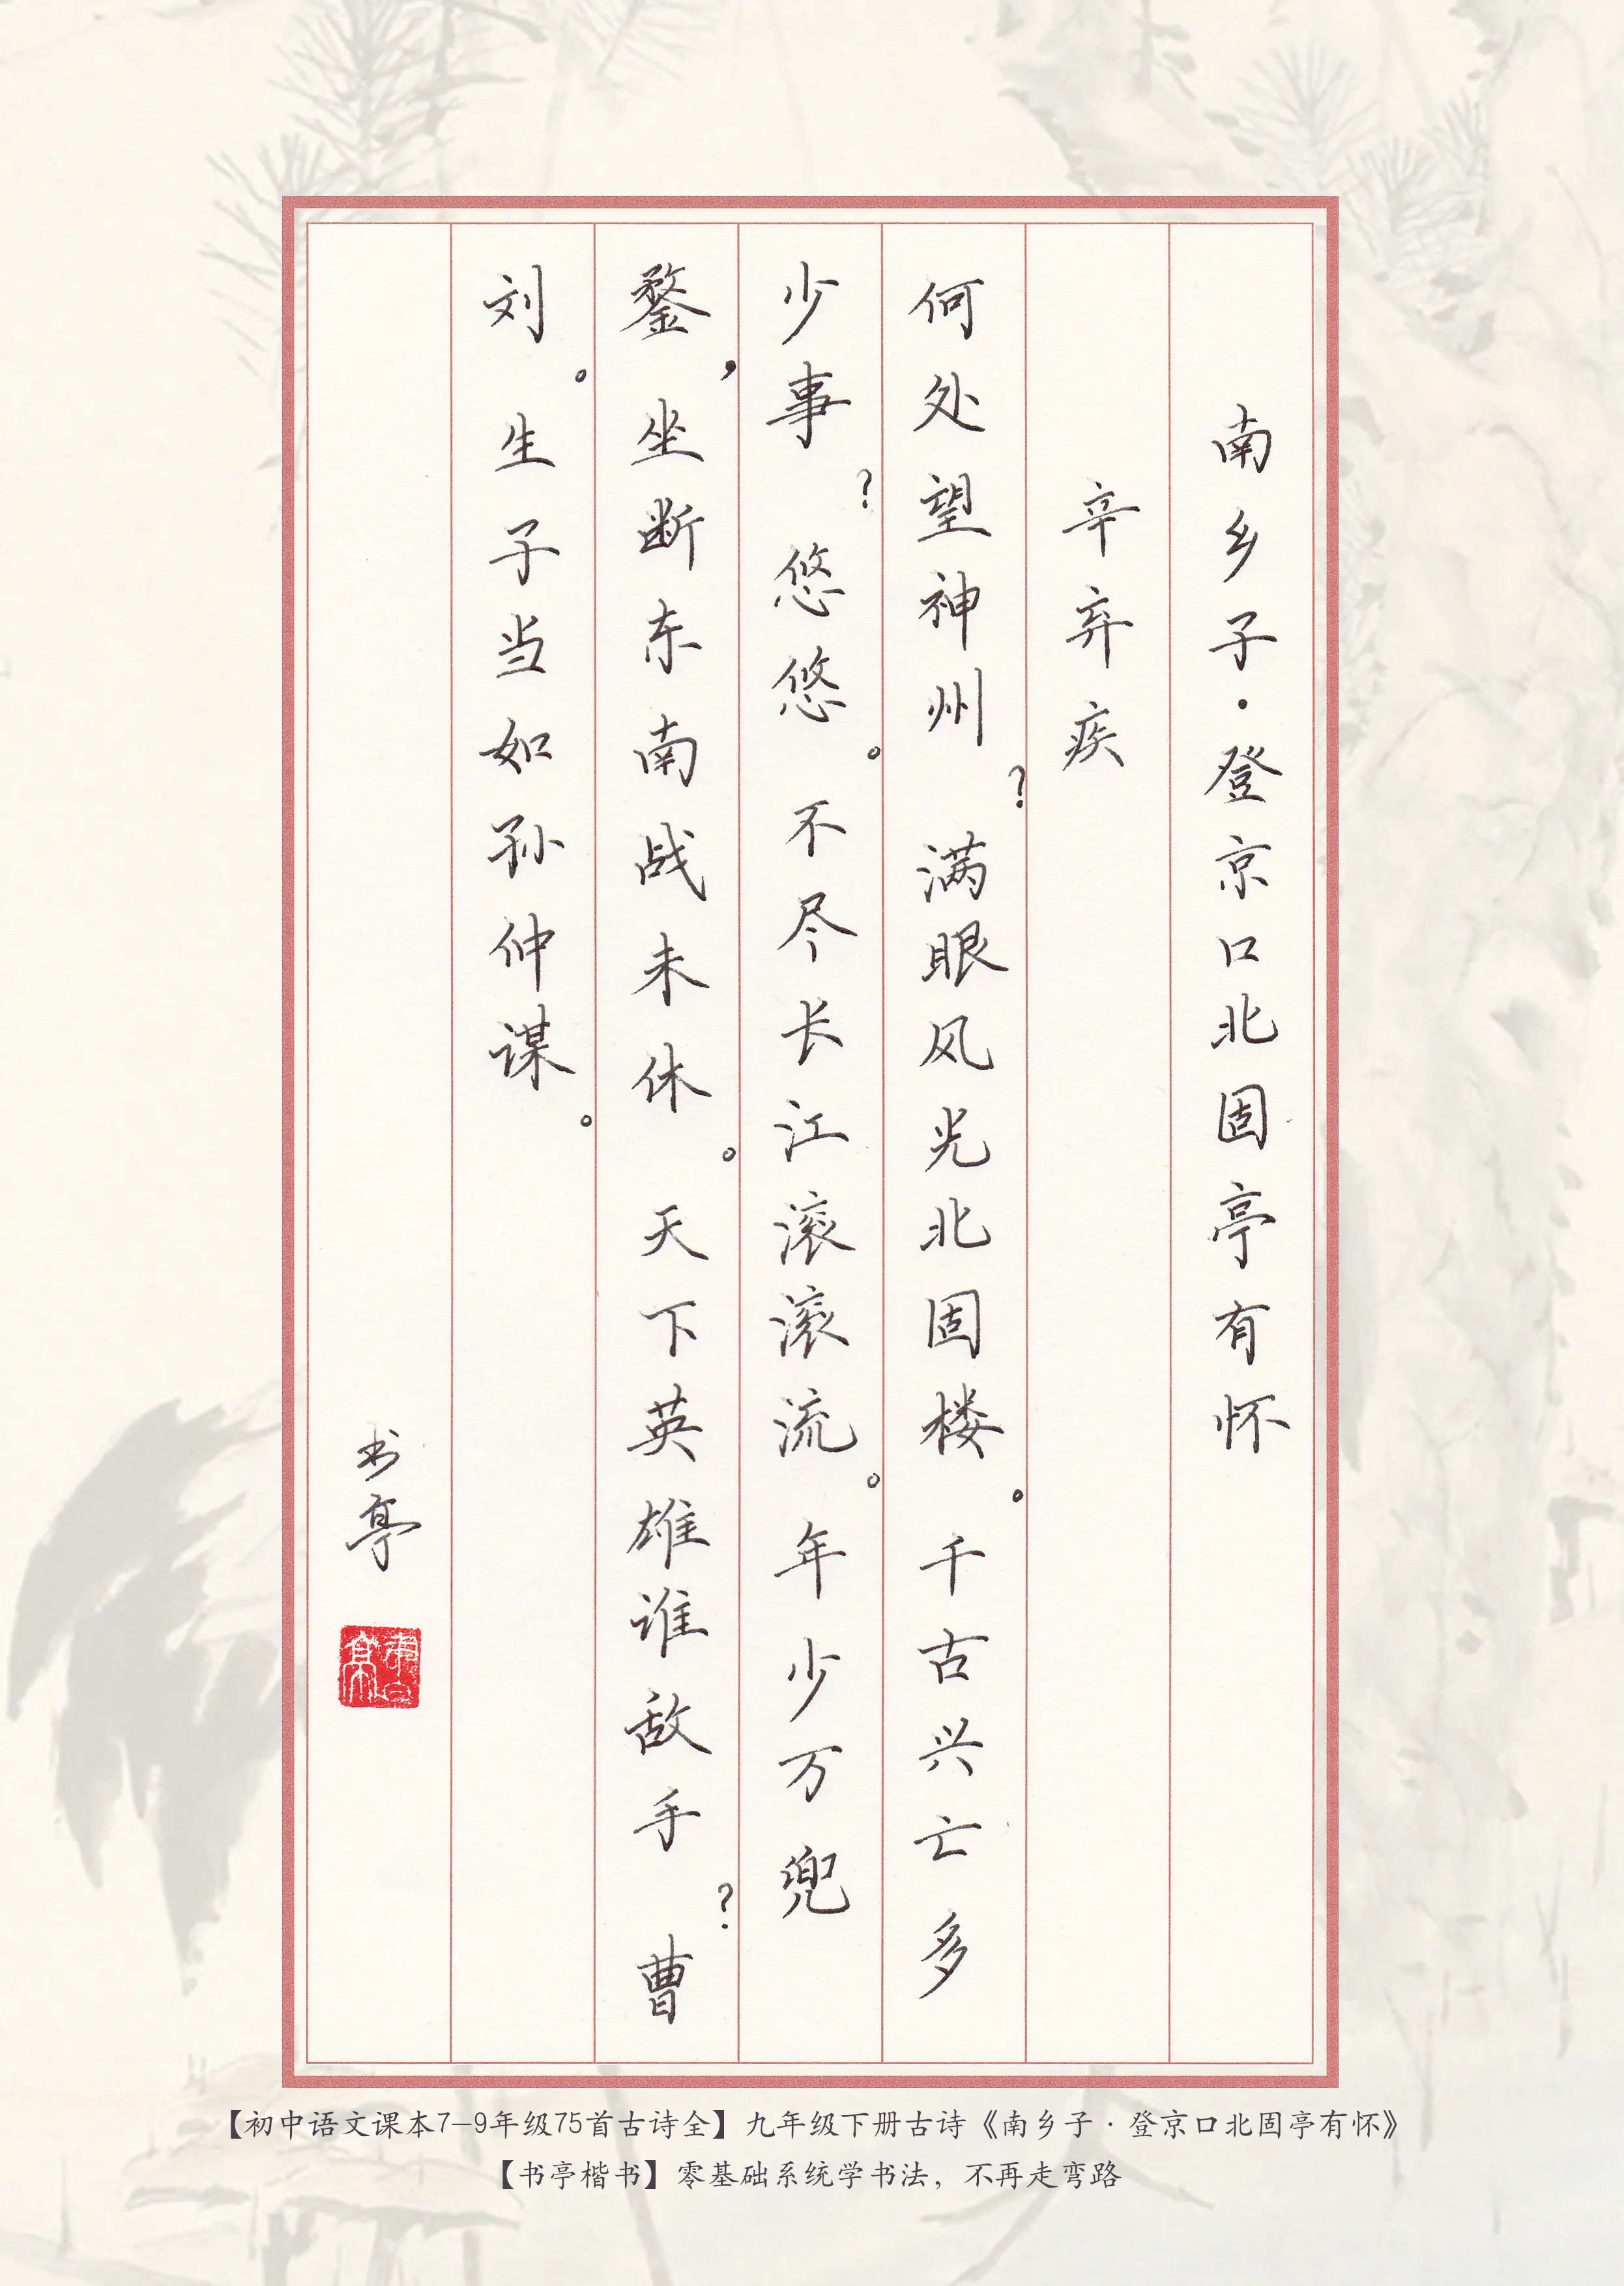 南乡子·登京口北固亭有怀
辛弃疾
何处望神州？满眼风光北固楼。千古兴亡多
少事？悠悠。不尽长江滚滚流。年少万兜
鍪，坐断东南战未休。天下英雄谁敌手？曹
刘。生子当如孙仲谋。
书亭
书亭
【初中语文课本7-9年级75首古诗全】九年级下册古诗《南乡子·登京口北固亭有怀》
【书亭楷书】零基础系统学书法，不再走弯路